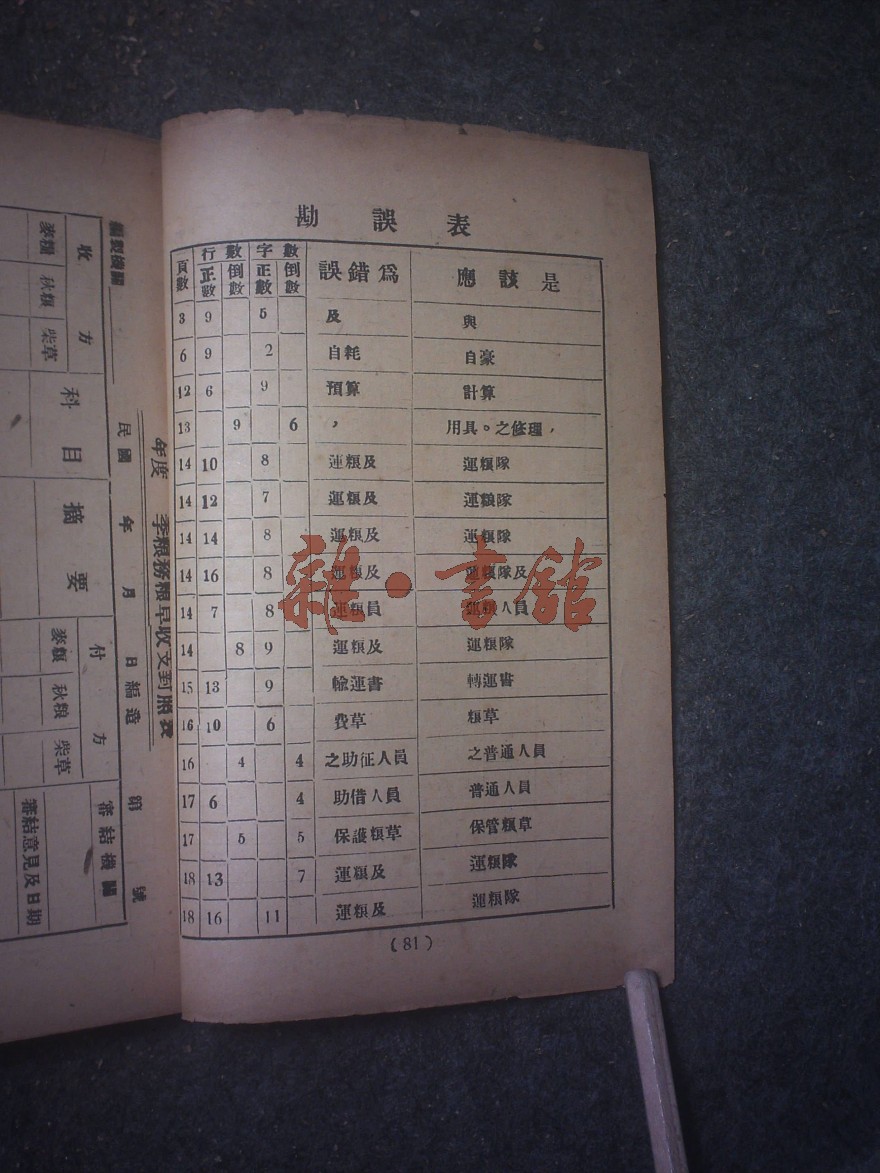 勘誤表
頁數 行數 字數 誤錯爲 應該是
正數 倒數 正數 倒數
3 9 5 及 與
6 9 2 自耗 自豪
12 6 9 預算 計算
13 9 6 , 用具。之修理,
14 10 8 運粮及 運粮隊
14 12 7 運粮及 運粮隊
14 14 8 運粮及 運粮隊
14 16 8 運粮及 運粮隊及
14 7 8 運粮員 運粮人員
14 8 9 運粮及 運粮隊
15 13 9 輸運書 轉運書
16 10 6 費草 粮草
16 4 4 之助征人員 之普通人員
17 6 4 助借人員 普通人員
17 5 5 保護粮草 保管粮草
18 13 7 運粮及 運粮隊
18 16 11 運粮及 運粮隊
(81)
雜·書館
年度 季粮務粮草收支對照表
編製機關 民國 年 月 日編造 第 號
收方 科目 摘要 付方 審結機關
麥粮 秋粮 柴草 麥粮 秋粮 柴草 審結意見及日期